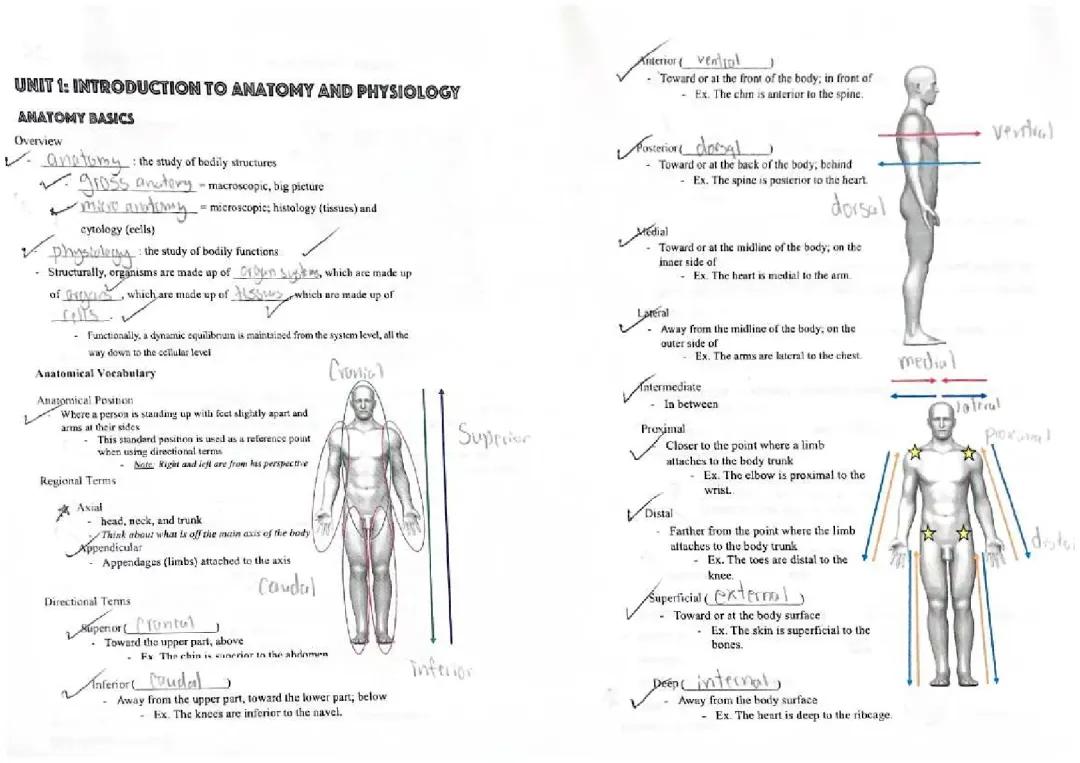 UNIT 1: INTRODUCTION TO ANATOMY AND PHYSIOLOGY
ANATOMY BASICS
Overview
- anatomy : the study of bodily structures
- gross anatomy = macroscopic, big picture
- micro anatomy = microscopic; histology (tissues) and
cytology (cells)
- physiology : the study of bodily functions
- Structurally, organisms are made up of organ systems, which are made up
of organs, which are made up of tissues, which are made up of
cells.
- Functionally, a dynamic equilibrium is maintained from the system level, all the
way down to the cellular level
Anatomical Vocabulary
Anatomical Position
- Where a person is standing up with feet slightly apart and
arms at their sides
- This standard position is used as a reference point
when using directional terms
- Note: Right and left are from his perspective
Regional Terms
Axial
- head, neck, and trunk
- Think about what is off the main axis of the body
Appendicular
- Appendages (limbs) attached to the axis
Directional Terms
Superior ( )
- Toward the upper part, above
- Ex. The chin is superior to the abdomen
Inferior ( caudal )
- Away from the upper part, toward the lower part; below
- Ex. The knees are inferior to the navel.
Cranial
Superior
Caudal
Inferior
Anterior ( ventral )
- Toward or at the front of the body; in front of
- Ex. The chin is anterior to the spine.
Posterior ( dorsal )
- Toward or at the back of the body; behind
- Ex. The spine is posterior to the heart.
Medial
- Toward or at the midline of the body; on the
inner side of
- Ex. The heart is medial to the arm.
Lateral
- Away from the midline of the body; on the
outer side of
- Ex. The arms are lateral to the chest.
Intermediate
- In between
Proximal
- Closer to the point where a limb
attaches to the body trunk
- Ex. The elbow is proximal to the
wrist.
Distal
- Farther from the point where the limb
attaches to the body trunk
- Ex. The toes are distal to the
knee.
Superficial ( external )
- Toward or at the body surface
- Ex. The skin is superficial to the
bones.
Deep ( internal )
- Away from the body surface
- Ex. The heart is deep to the ribcage.
ventral
dorsal
medial
lateral
proximal